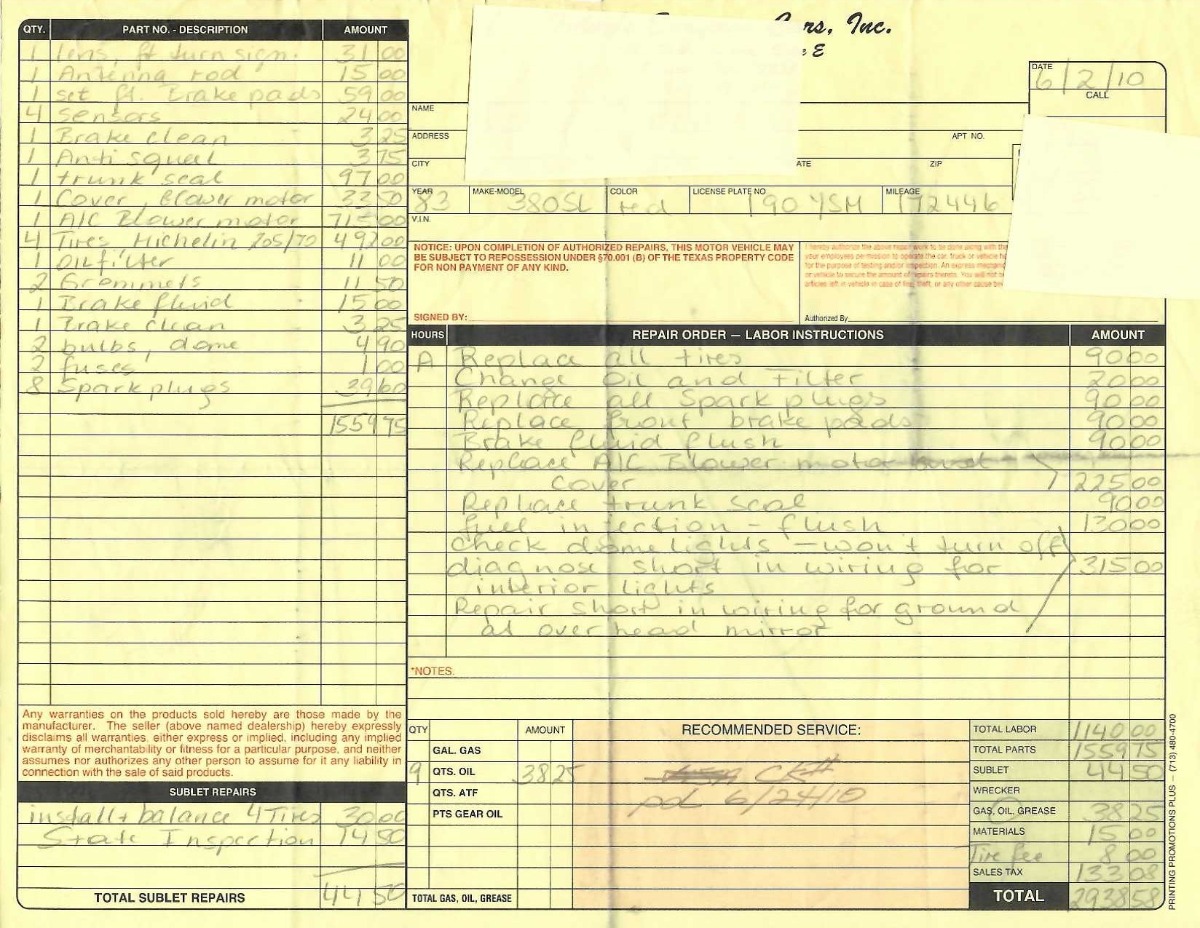 rs, Inc.
e E
QTY. PART NO. - DESCRIPTION AMOUNT
1 lens, ft turn sign. 31 00
1 Antenna rod 15 00
1 set ft. Brake pads 59 00
4 sensors 24 00
1 Brake clean 3 25
1 Anti squeal 3 75
1 trunk seal 97 00
1 Cover, blower motor 33 50
1 A/C Blower motor 715 00
4 Tires Michelin 205/70 492 00
1 Oil filter 11 00
2 Grommets 11 50
1 Brake fluid 15 00
1 Brake clean 3 25
2 bulbs, dome 4 90
2 fuses 1 00
8 Spark plugs 39 60
1559 75
Any warranties on the products sold hereby are those made by the
manufacturer. The seller (above named dealership) hereby expressly
disclaims all warranties, either express or implied, including any implied
warranty of merchantability or fitness for a particular purpose, and neither
assumes nor authorizes any other person to assume for it any liability in
connection with the sale of said products.
SUBLET REPAIRS
install + balance 4 Tires 30 00
State Inspection 14 50
TOTAL SUBLET REPAIRS 44 50
DATE
6/2/10
CALL
NAME
ADDRESS APT NO.
CITY ATE ZIP
YEAR MAKE-MODEL COLOR LICENSE PLATE NO MILEAGE
83 380SL red 190 YSM 172446
V.I.N.
NOTICE: UPON COMPLETION OF AUTHORIZED REPAIRS, THIS MOTOR VEHICLE MAY
BE SUBJECT TO REPOSSESSION UNDER §70.001 (B) OF THE TEXAS PROPERTY CODE
FOR NON PAYMENT OF ANY KIND.
SIGNED BY:
I hereby authorize the above repair work to be done along with the
your employees permission to operate the car, truck or vehicle
for the purpose of testing and/or inspection. An express
or vehicle to secure the amount of repairs thereto. You will not
articles left in vehicle in case of fire, theft, or any other cause
Authorized By
HOURS REPAIR ORDER — LABOR INSTRUCTIONS AMOUNT
A Replace all tires 90 00
Change Oil and Filter 20 00
Replace all Spark plugs 90 00
Replace front brake pads 90 00
Brake fluid flush 90 00
Replace A/C Blower motor and
cover 225 00
Replace trunk seal 90 00
fuel injection - flush 130 00
Check dome lights - won't turn off
diagnose short in wiring for 315 00
interior lights
Repair short in wiring for ground
at overhead mirror
*NOTES.
QTY AMOUNT
GAL. GAS
9 QTS. OIL 38 25
QTS. ATF
PTS GEAR OIL
TOTAL GAS, OIL, GREASE
RECOMMENDED SERVICE:
CK#
pd 6/24/10
TOTAL LABOR 1140 00
TOTAL PARTS 1559 75
SUBLET 44 50
WRECKER
GAS, OIL, GREASE 38 25
MATERIALS 15 00
Tire fee 8 00
SALES TAX 133 08
TOTAL 2938 58
PRINTING PROMOTIONS PLUS — (713) 480-4700